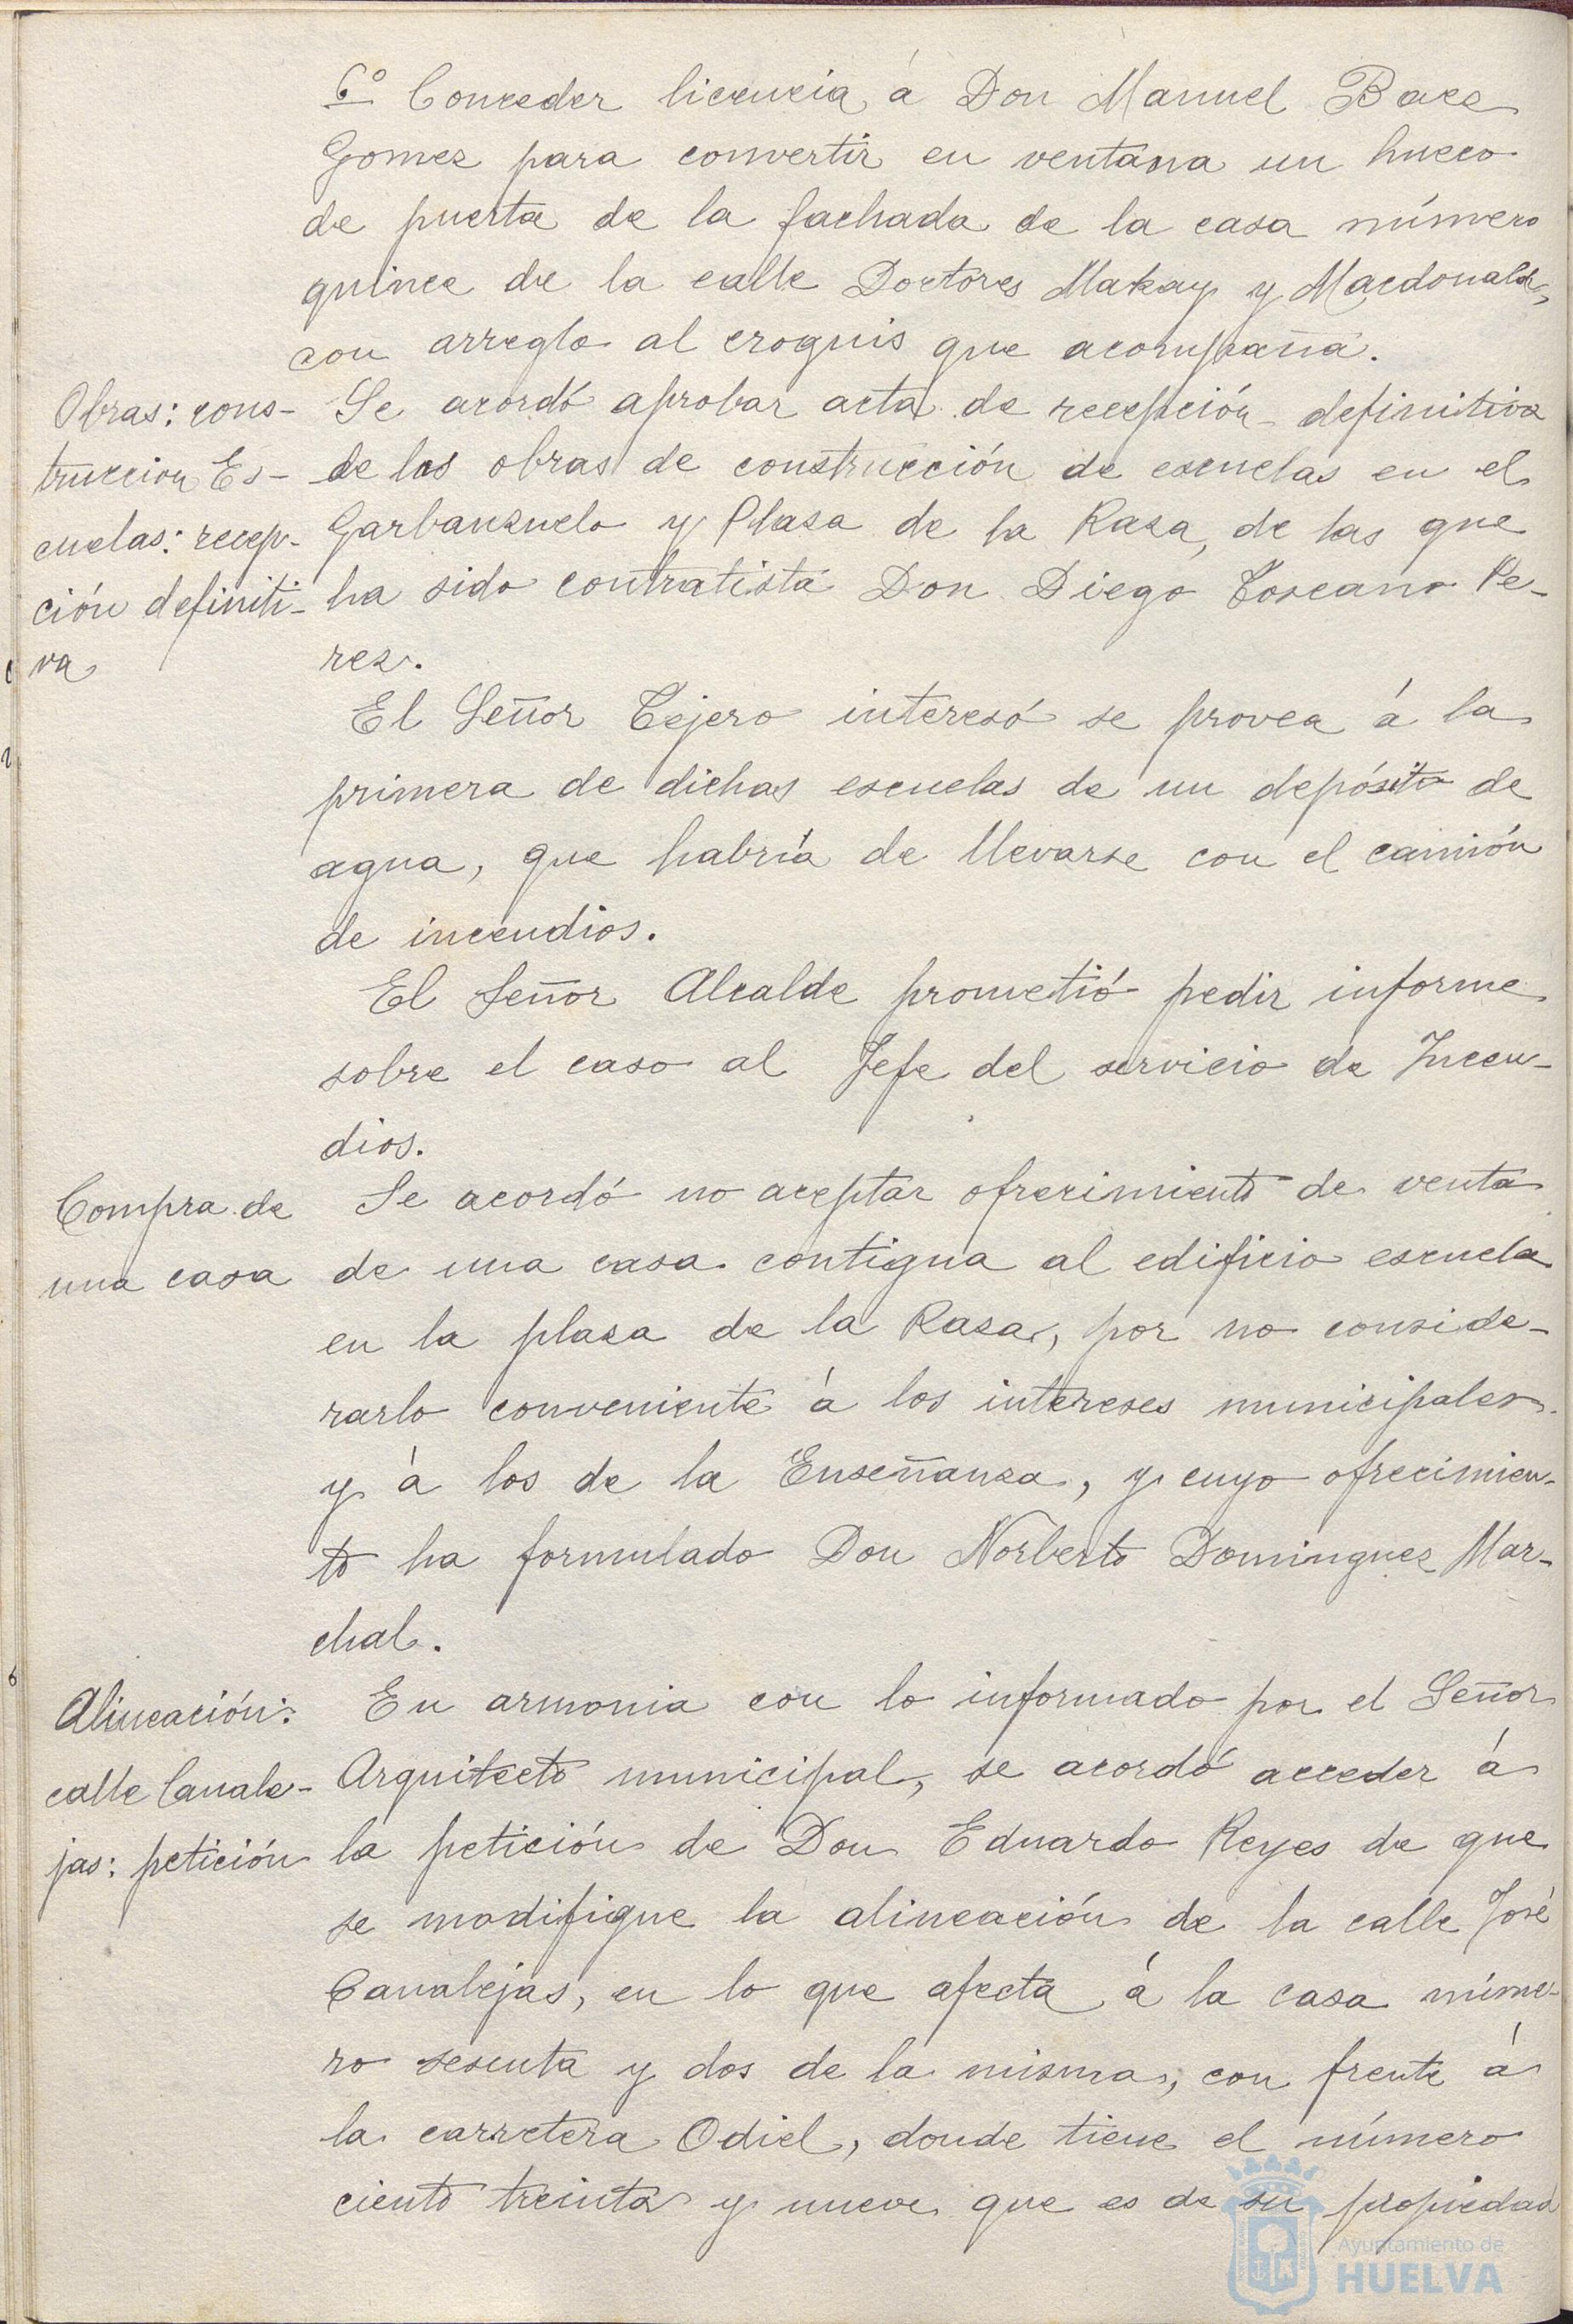 6º Conceder licencia á Don Manuel Baez
Gomez para convertir en ventana un hueco
de puerta de la fachada de la casa número
quince de la calle Doctores Makay y Macdonald,
con arreglo al croquis que acompaña.
Obras: cons-
truccion Es-
cuelas: recep-
ción definiti-
va
Se acordó aprobar acta de recepción definitiva
de las obras de construcción de escuelas en el
Garbanzuelo y Plaza de la Raza, de las que
ha sido contratista Don Diego Toscano Pe-
rez.
El Señor Tejero interesó se provea á la
primera de dichas escuelas de un depósito de
agua, que habría de llevarse con el camión
de incendios.
El Señor Alcalde prometió pedir informe
sobre el caso al Jefe del servicio de Incen-
dios.
Compra de
una casa
Se acordó no aceptar ofrecimiento de venta
de una casa contigua al edificio escuela
en la plaza de la Raza, por no conside-
rarlo conveniente á los intereses municipales
y á los de la Enseñanza, y cuyo ofrecimien-
to ha formulado Don Norberto Dominguez Mar-
chal.
Alineación:
calle Canale-
jas: petición
En armonia con lo informado por el Señor
Arquitecto municipal, se acordó acceder á
la petición de Don Eduardo Reyes de que
se modifique la alineación de la calle José
Canalejas, en lo que afecta á la casa núme-
ro sesenta y dos de la misma, con frente á
la carretera Odiel, donde tiene el número
ciento treinta y nueve que es de su propiedad
Ayuntamiento de
HUELVA